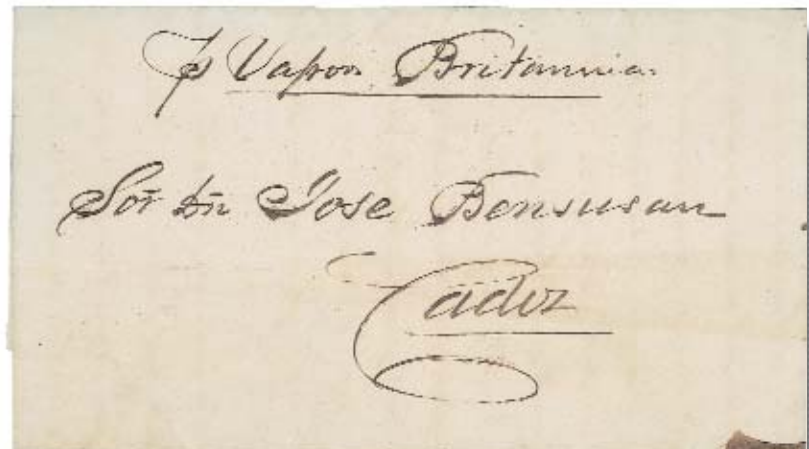 p Vapor Britannia
Sor Dn Jose Bensusan
Cadiz